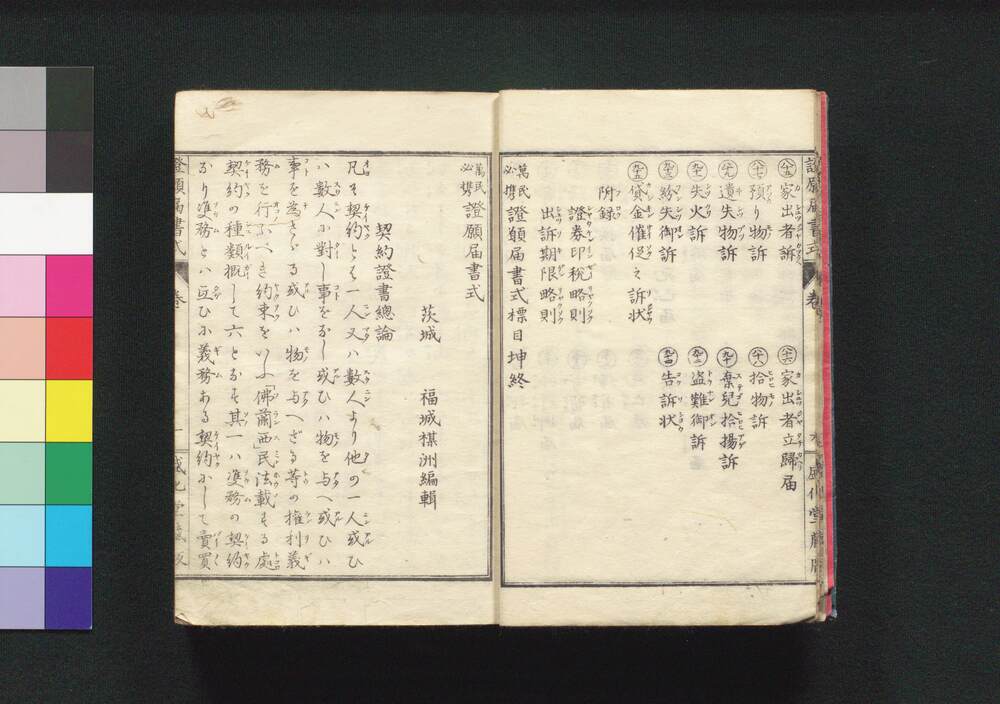 八十五 家出者訴
八十六 家出者立歸届
八十七 預り物訴
八十八 拾物訴
八十九 遺失物訴
九十 棄兒拾揚訴
九十一 失火訴
九十二 盗難御訴
九十三 紛失御訴
九十四 告訴状
九十五 貸金催促之訴状
附録
證券印税略則
出訴期限略則
萬民必携 證願届書式標目坤終
萬民必携 證願届書式
茨城 福城棋洲編輯
契約證書總論
凡そ契約とは一人又ハ數人より他の一人或ひ
ハ數人に對し事をなし或ひハ物を与へ或ひハ
事を為さゞる或ひハ物を与へざる等の權利義
務を行ふべき約束をいふ「佛蘭西」民法載する處
契約の種類概して六となす其一ハ雙務の契約
なり雙務とハ互ひに義務ある契約にして賣買
證願届書式